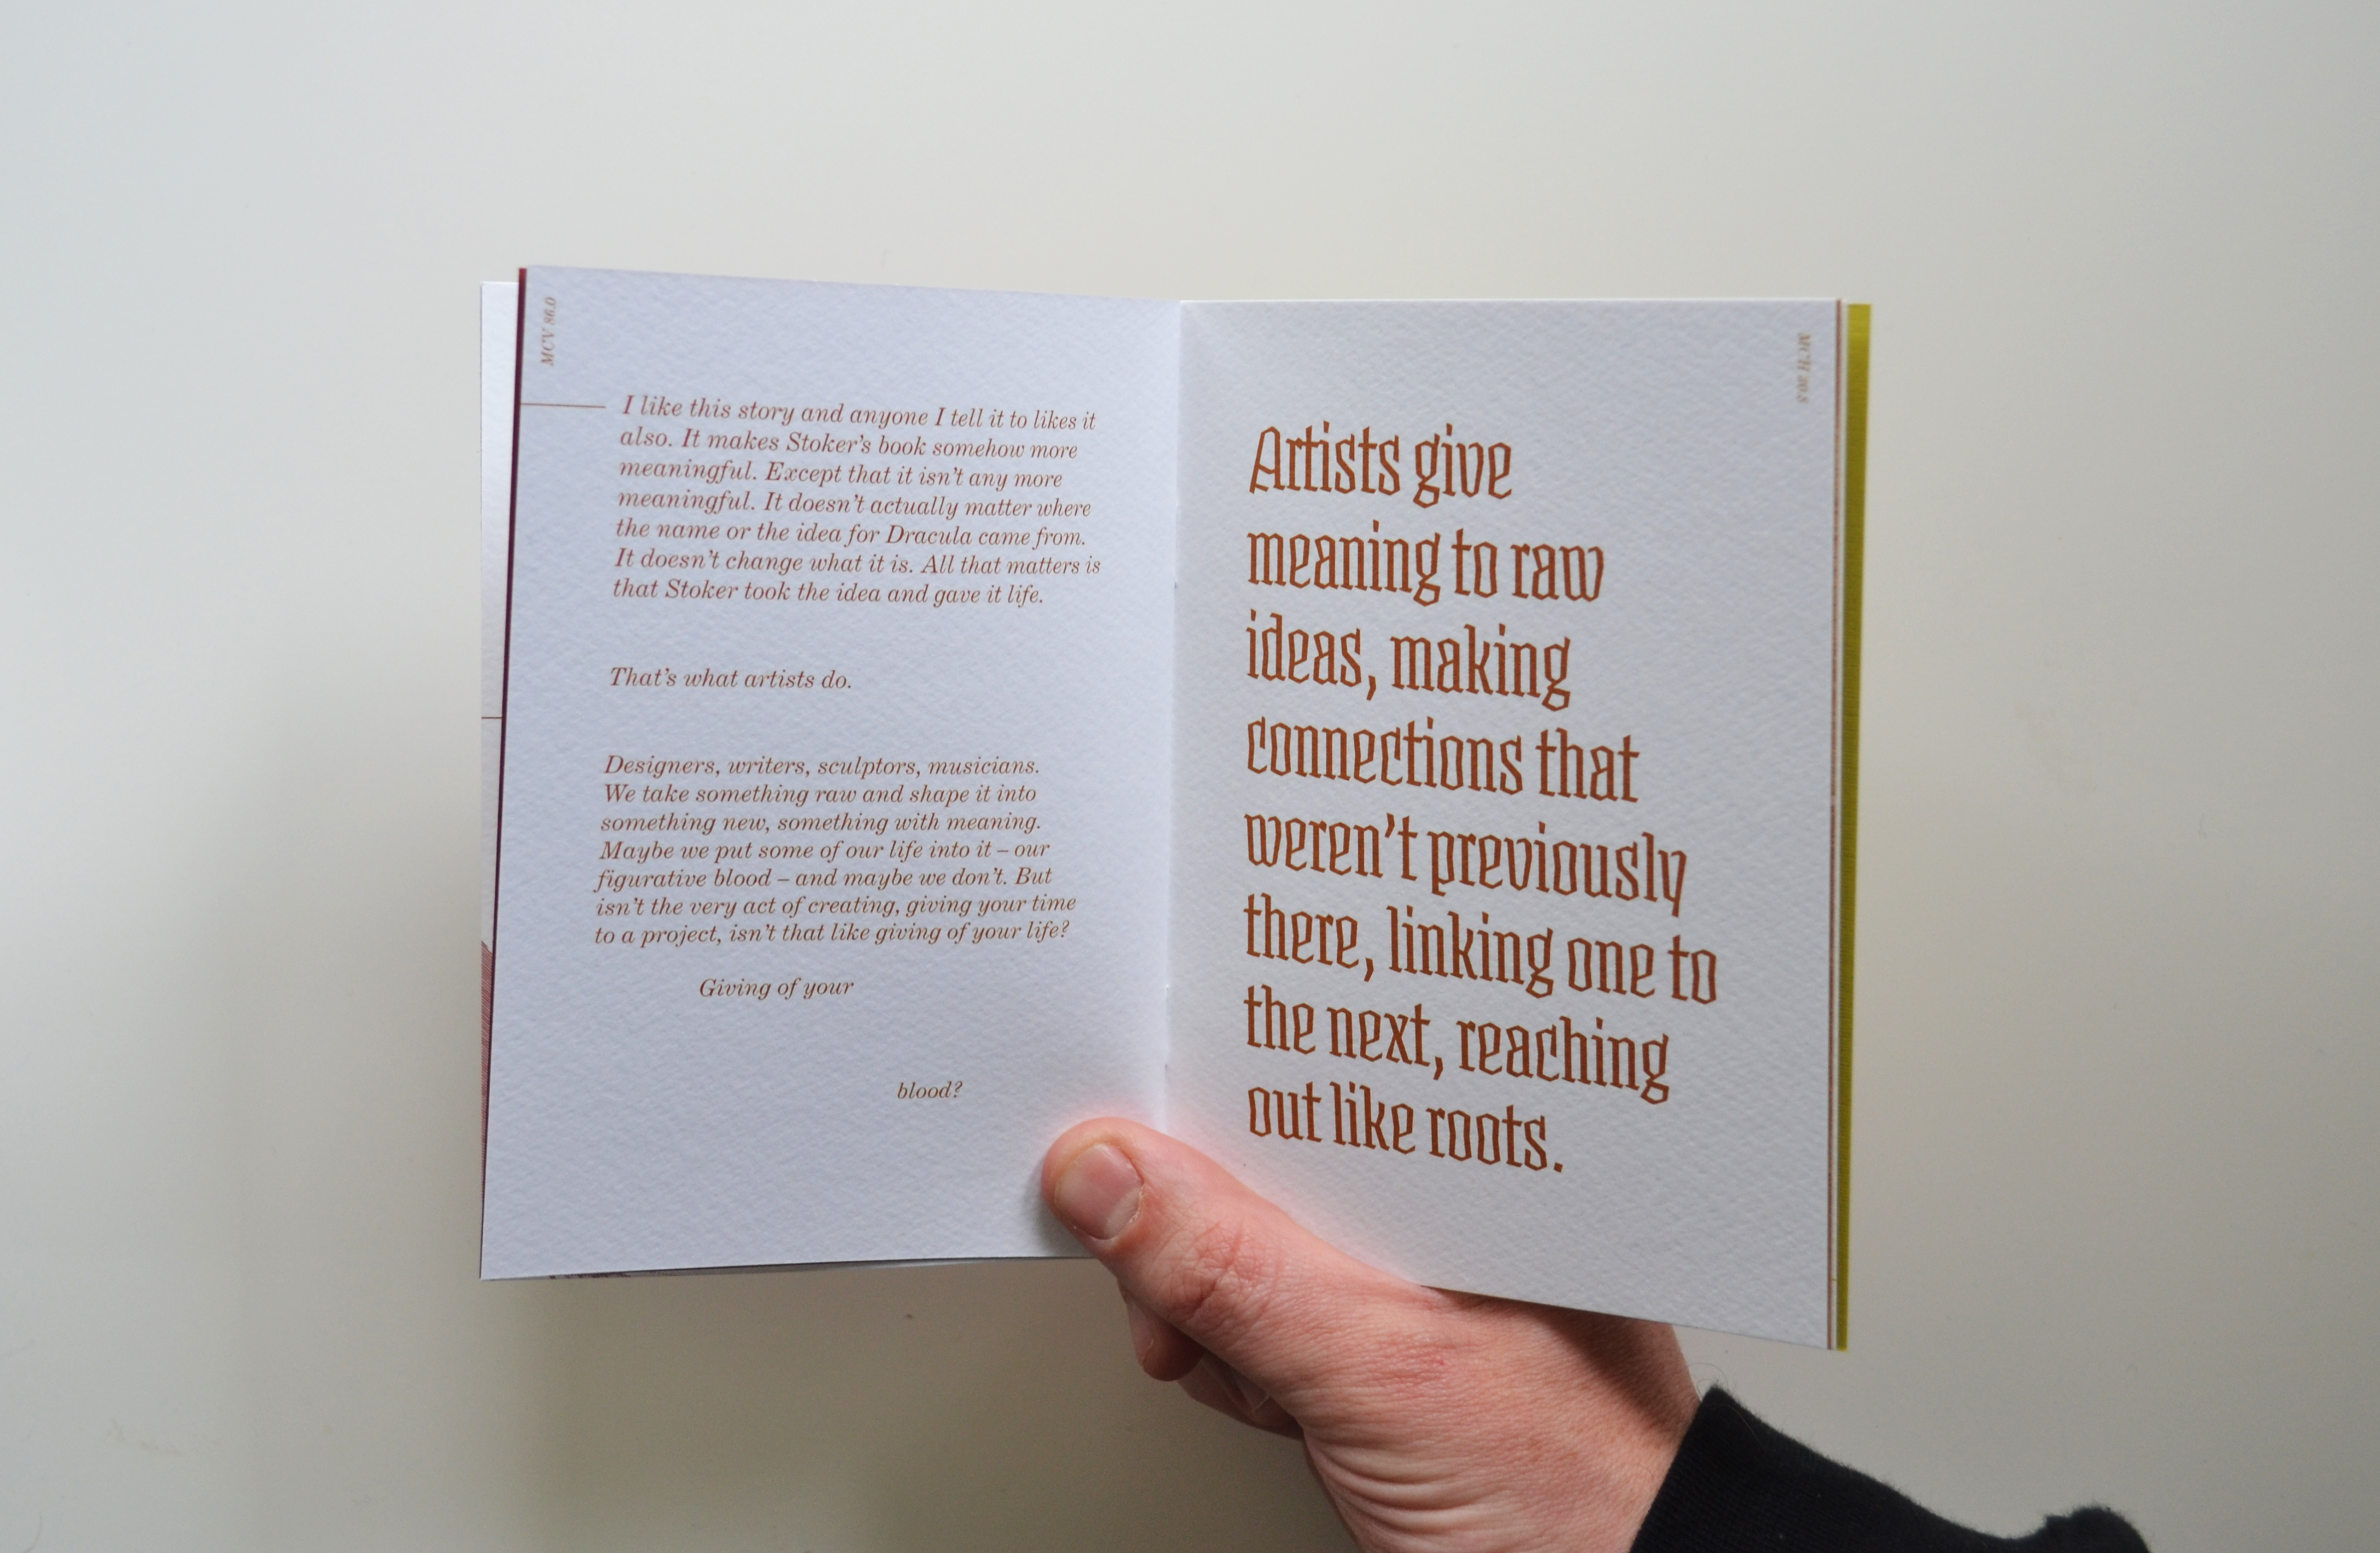 MCV 86.0
I like this story and anyone I tell it to likes it
also. It makes Stoker’s book somehow more
meaningful. Except that it isn’t any more
meaningful. It doesn’t actually matter where
the name or the idea for Dracula came from.
It doesn’t change what it is. All that matters is
that Stoker took the idea and gave it life.
That’s what artists do.
Designers, writers, sculptors, musicians.
We take something raw and shape it into
something new, something with meaning.
Maybe we put some of our life into it – our
figurative blood – and maybe we don’t. But
isn’t the very act of creating, giving your time
to a project, isn’t that like giving of your life?
Giving of your
blood?
Artists give
meaning to raw
ideas, making
connections that
weren’t previously
there, linking one to
the next, reaching
out like roots.